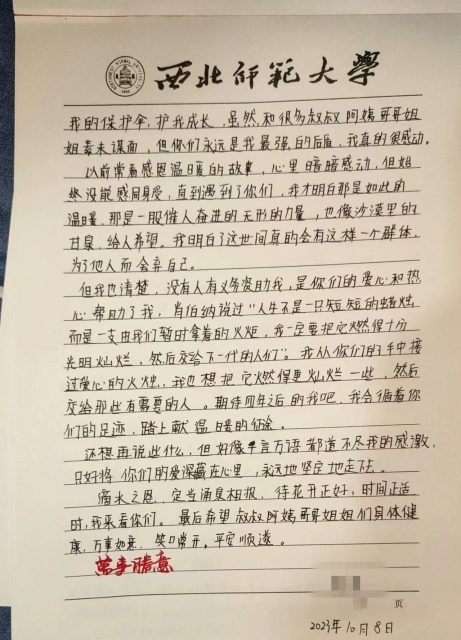 西北师范大学
我的保护伞,护我成长,虽然和很多叔叔阿姨哥哥姐
姐素未谋面,但你们永远是我最强的后盾,我真的很感动。
以前常看感恩温暖的故事,心里暗暗感动,但始
终没能感同身受,直到遇到了你们,我才明白那是如此的
温暖,那是一股催人奋进的无形的力量,也像沙漠里的
甘泉,给人希望。我明白了这世间真的会有这样一个群体,
为了他人而会弃自己。
但我也清楚,没有人有义务资助我,是你们的爱心和热
心帮助了我,肖伯纳说过“人生不是一只短短的蜡烛
而是一支由我们暂时拿着的火炬,我一定要把它燃得十分
光明灿烂、然后交给下一代的人们”。我从你们的手中接
过爱心的火炬,我也想把它燃得更灿烂一些,然后
交给那些有需要的人。期待四年之后的我吧,我会循着你
们的足迹,踏上献温暖的征途。
还想再说些什么,但好像千言万语都道不尽我的感激,
只好将你们的爱深藏在心里,永远地坚定地走下去。
滴水之恩,定当涌泉相报,待花开正好,时间正适
时,我来看你们。最后希望叔叔阿姨哥哥姐姐们身体健
康,万事如意,笑口常开,平安顺遂。
万事胜意
页
2023年10月8日